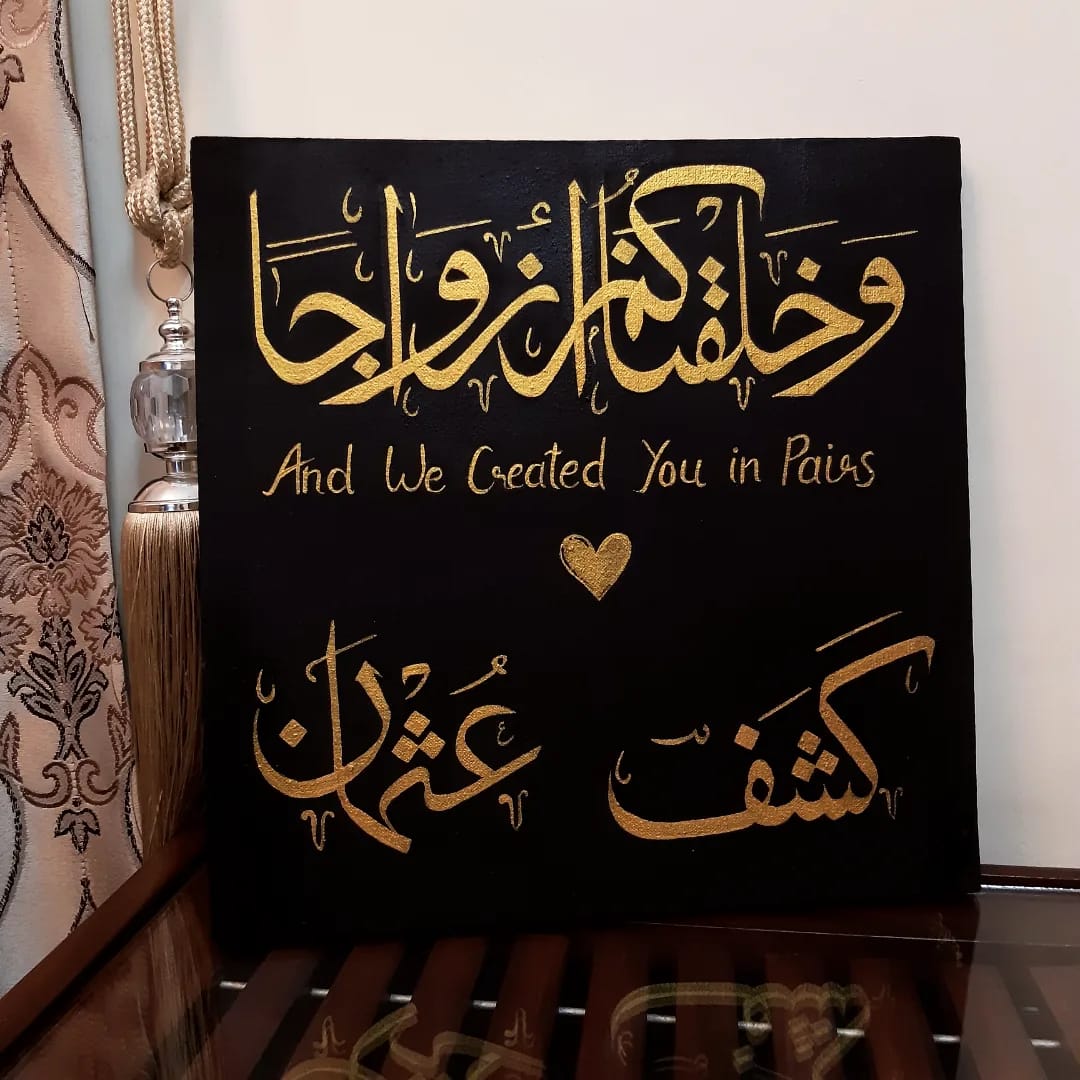 وَخَلَقْنَاكُمْ أَزْوَاجًا
And We Created You in Pairs
كَشَف عُثمان